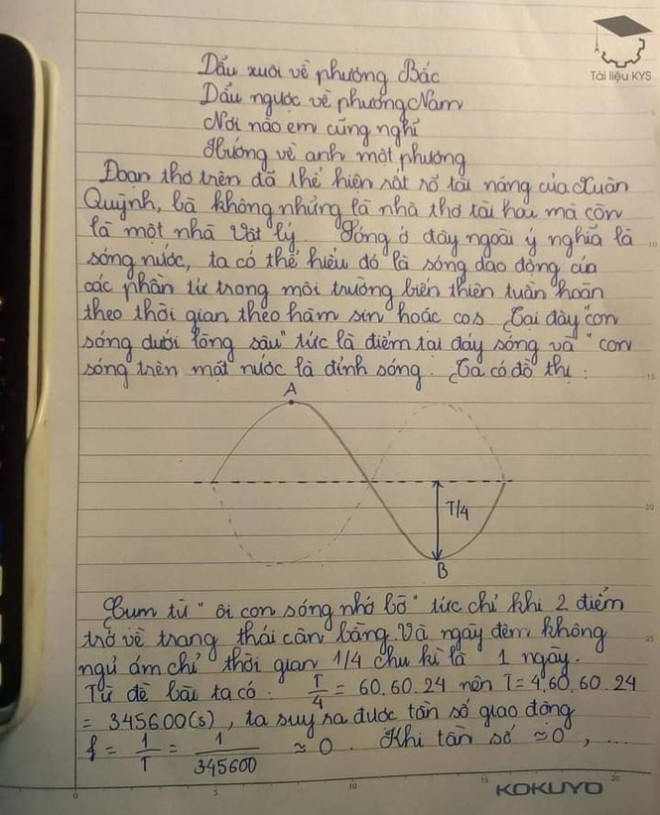 Tài liệu KYS
Dẫu xuôi về phương Bắc
Dẫu ngược về phương Nam
Nơi nào em cũng nghĩ
Hướng về anh một phương
Đoạn thơ trên đã thể hiện rất rõ tài năng của Xuân
Quỳnh, bà không những là nhà thơ tài hoa mà còn
là một nhà Vật lý. Sóng ở đây ngoài ý nghĩa là
sóng nước, ta có thể hiểu đó là sóng dao động của
các phần tử trong môi trường biến thiên tuần hoàn
theo thời gian theo hàm sin hoặc cos. Tại đây "con
sóng dưới lòng sâu" tức là điểm tại đáy sóng và "con
sóng trên mặt nước là đỉnh sóng. Ta có đồ thị:
A
T/4
B
Cụm từ "ôi con sóng nhớ bờ" tức chỉ khi 2 điểm
trở về trạng thái cân bằng. Và ngày đêm không
ngủ ám chỉ thời gian 1/4 chu kì là 1 ngày.
Từ đề bài ta có: T/4 = 60.60.24 nên T = 4.60.60.24
= 345600(s), ta suy ra được tần số giao động
f = 1/T = 1/345600 ≈ 0. Khi tần số ≈ 0, ...
KOKUYO